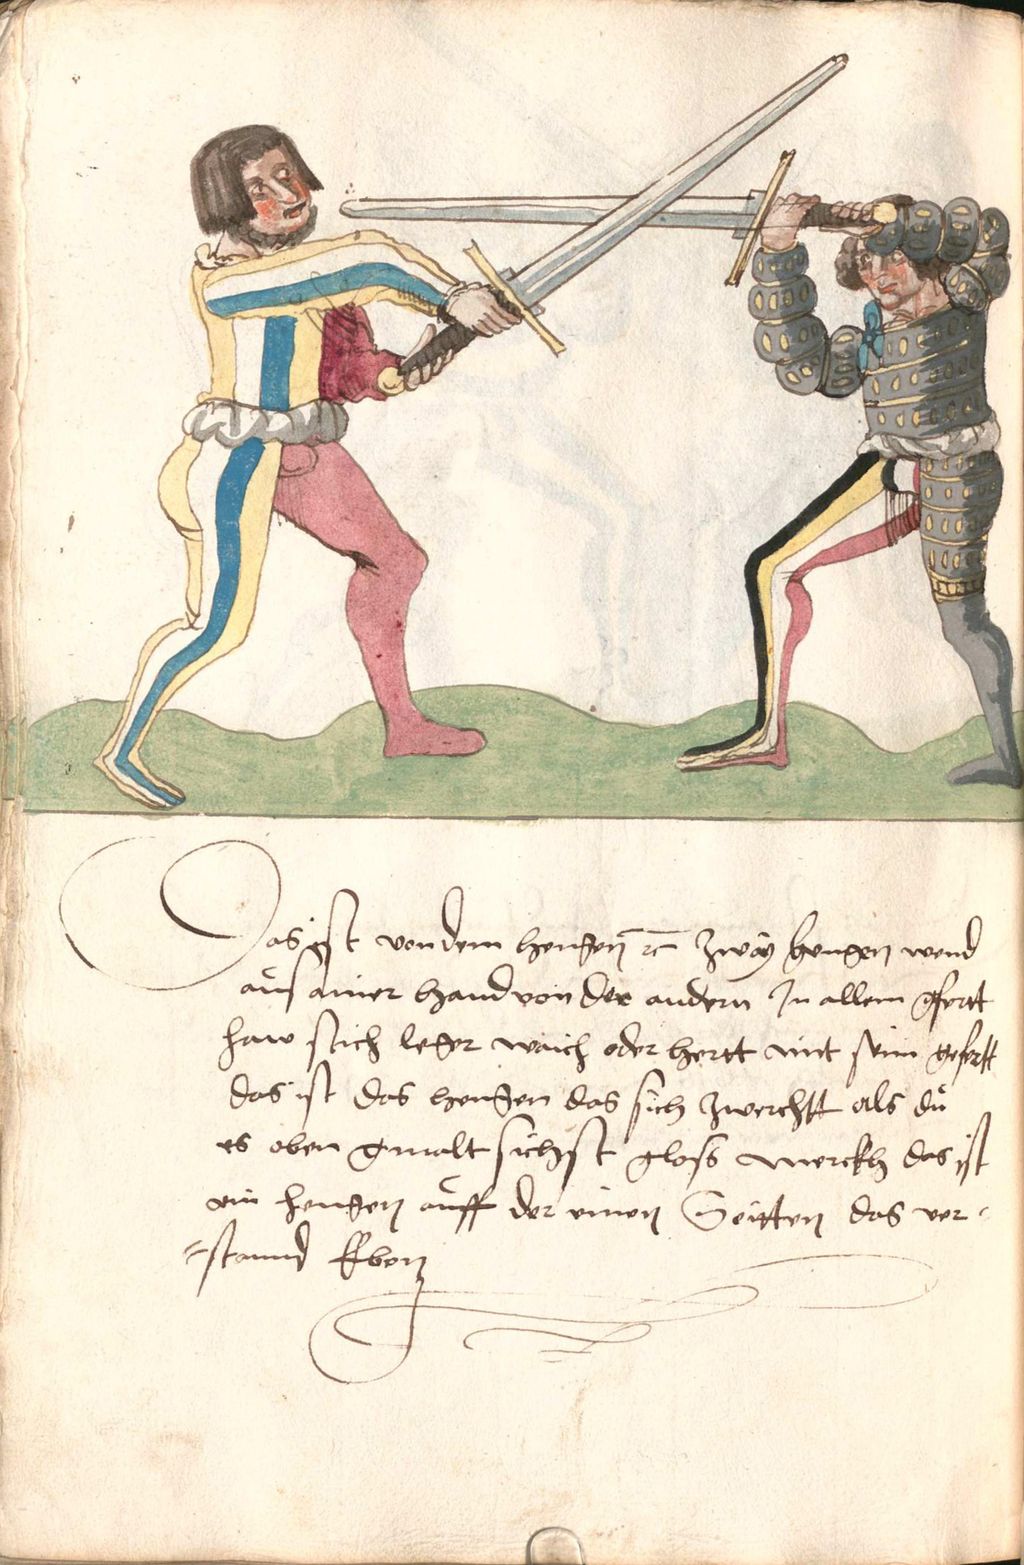 Das ist von dem hengen rc zway hengen wend
aůs ainer hand von der andern In allem gfertt
haw stich leger waich oder hertt vint sein gefertt
das ist das hengen das sich zwerchtt als dů
es oben gmalt sichst gloss Merckh das ist
ein hengen aůff der einen Seitten das ver-
-stannd Eben